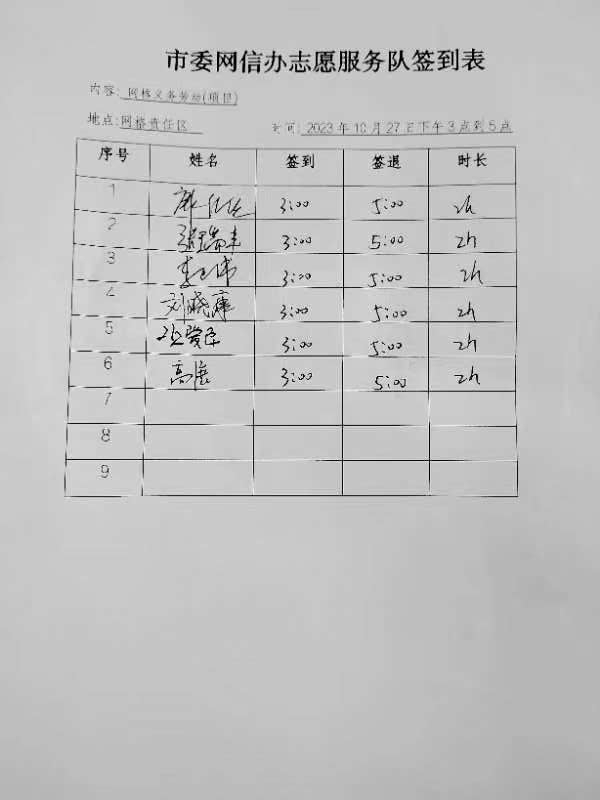 市委网信办志愿服务队签到表
内容: 网格义务劳动(项目)
地点:网格责任区 时间: 2023年10月27日下午3点到5点
序号 姓名 签到 签退 时长
1 3:00 5:00 2h
2 3:00 5:00 2h
3 3:00 5:00 2h
4 刘晓 3:00 5:00 2h
5 3:00 5:00 2h
6 高 3:00 5:00 2h
7
8
9